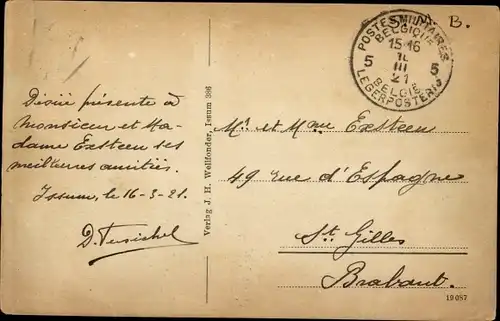 S. M. B.
POSTES MILITAIRES
BELGIQUE
15-16
III
21
5 5
BELGIE
LEGERPOSTERIJ
présente à
Monsieur et Ma-
dame Exsteen ses
meilleures amitiés.
Issum, le 16-3-21.
Verlag J. H. Wellfonder, Issum 386
Mr et Mme Exsteen
49 rue d'Espagne
St. Gilles
Brabant.
19087